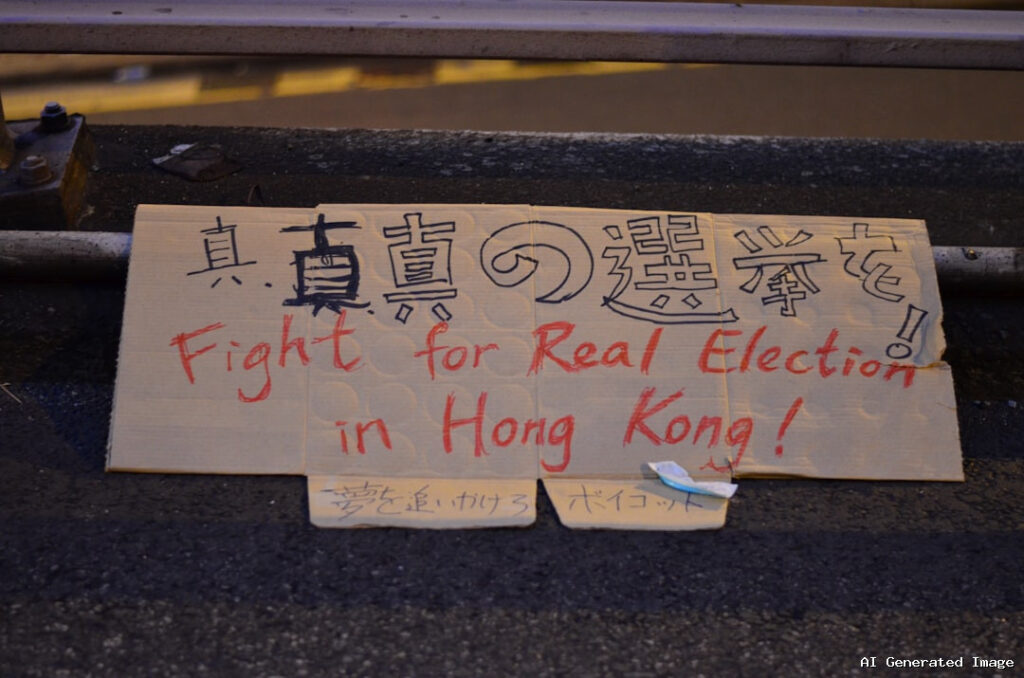 真.真真の選挙を!
Fight for Real Election
in Hong Kong!
夢を追いかけろ ボイコット
AI Generated Image